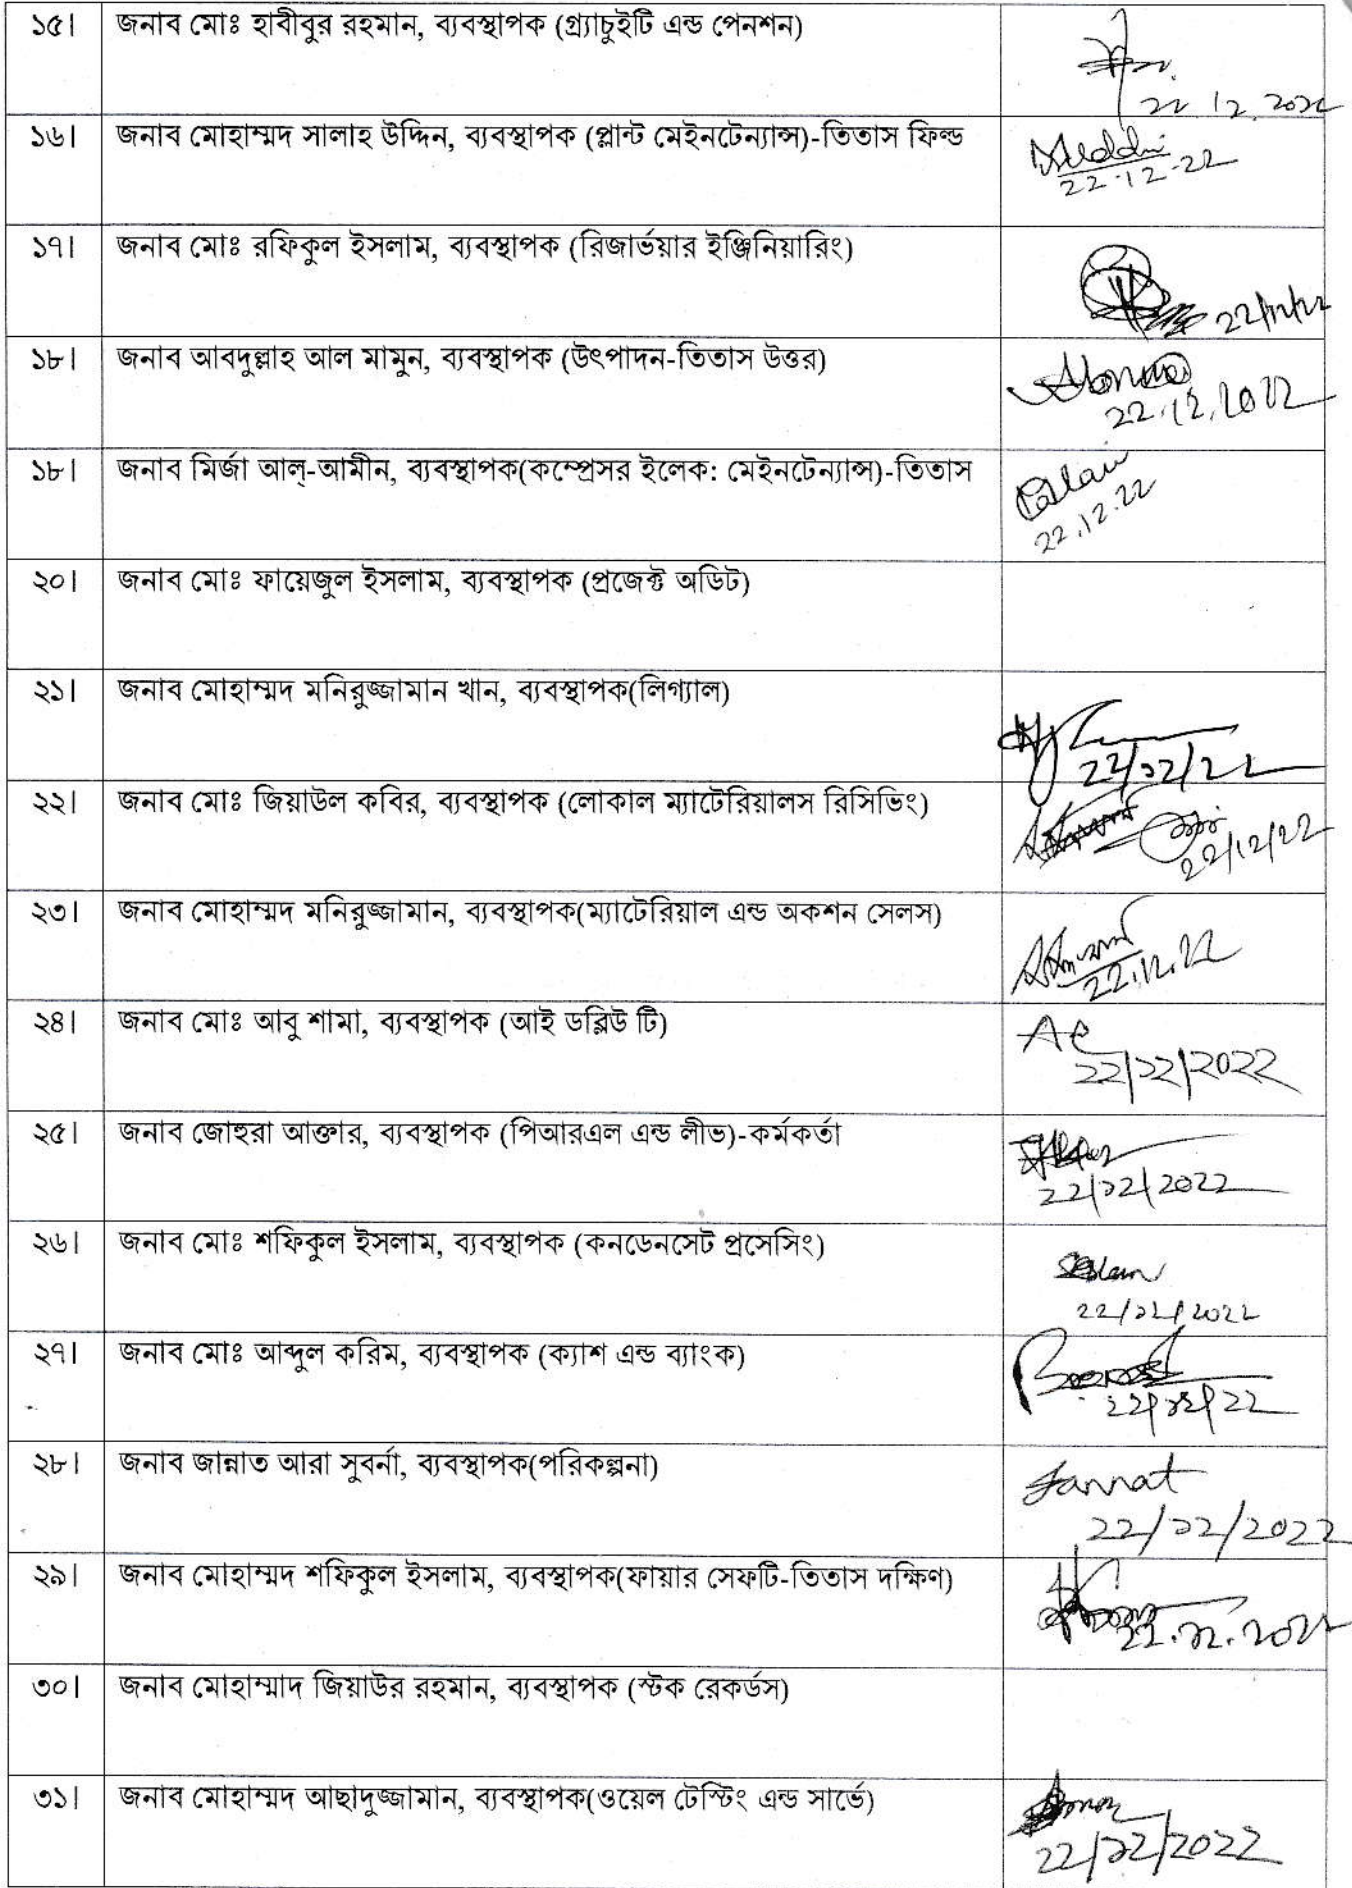 ১৫। জনাব মোঃ হাবীবুর রহমান, ব্যবস্থাপক (গ্র্যাচুইটি এন্ড পেনশন)
22 12 2022
১৬। জনাব মোহাম্মদ সালাহ উদ্দিন, ব্যবস্থাপক (প্লান্ট মেইনটেন্যান্স)-তিতাস ফিল্ড
22-12-22
১৭। জনাব মোঃ রফিকুল ইসলাম, ব্যবস্থাপক (রিজার্ভয়ার ইঞ্জিনিয়ারিং)
22/12/22
১৮। জনাব আবদুল্লাহ আল মামুন, ব্যবস্থাপক (উৎপাদন-তিতাস উত্তর)
22.12.2022
১৮। জনাব মির্জা আল্-আমীন, ব্যবস্থাপক(কম্প্রেসর ইলেক: মেইনটেন্যান্স)-তিতাস
22.12.22
২০। জনাব মোঃ ফায়েজুল ইসলাম, ব্যবস্থাপক (প্রজেক্ট অডিট)
২১। জনাব মোহাম্মদ মনিরুজ্জামান খান, ব্যবস্থাপক(লিগ্যাল)
22/১২/22
২২। জনাব মোঃ জিয়াউল কবির, ব্যবস্থাপক (লোকাল ম্যাটেরিয়ালস রিসিভিং)
22/12/22
২৩। জনাব মোহাম্মদ মনিরুজ্জামান, ব্যবস্থাপক(ম্যাটেরিয়াল এন্ড অকশন সেলস)
22.12.22
২৪। জনাব মোঃ আবু শামা, ব্যবস্থাপক (আই ডব্লিউ টি)
22/১২/2022
২৫। জনাব জোহুরা আক্তার, ব্যবস্থাপক (পিআরএল এন্ড লীভ)-কর্মকর্তা
22/১২/2022
২৬। জনাব মোঃ শফিকুল ইসলাম, ব্যবস্থাপক (কনডেনসেট প্রসেসিং)
22/১২/2022
২৭। জনাব মোঃ আব্দুল করিম, ব্যবস্থাপক (ক্যাশ এন্ড ব্যাংক)
22/১২/22
২৮। জনাব জান্নাত আরা সুবর্না, ব্যবস্থাপক(পরিকল্পনা)
Jannat
22/১২/2022
২৯। জনাব মোহাম্মদ শফিকুল ইসলাম, ব্যবস্থাপক(ফায়ার সেফটি-তিতাস দক্ষিণ)
22.১২.2022
৩০। জনাব মোহাম্মাদ জিয়াউর রহমান, ব্যবস্থাপক (স্টক রেকর্ডস)
৩১। জনাব মোহাম্মদ আছাদুজ্জামান, ব্যবস্থাপক(ওয়েল টেস্টিং এন্ড সার্ভে)
22/১২/2022